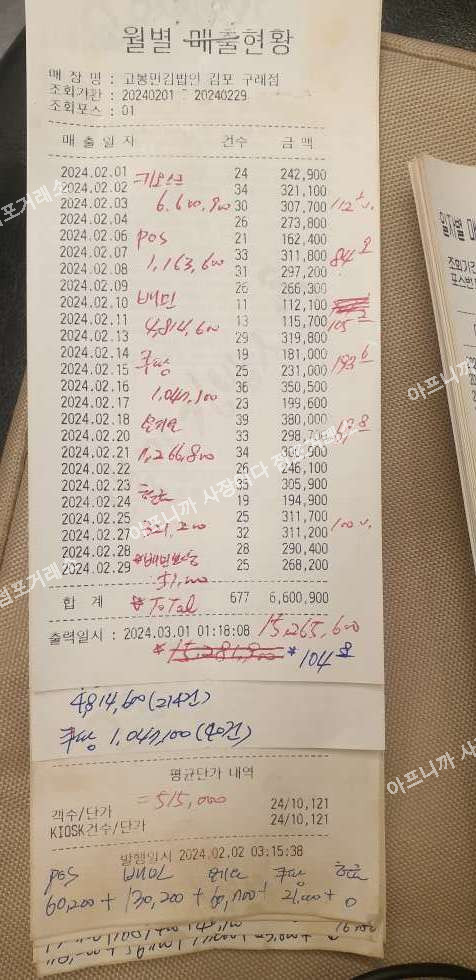 월별 매출현황
매 장 명 : 고봉민김밥인 김포 구래점
조회기환 : 20240201 ~ 20240229
조회포스 : 01
매 출 일 자 건수 금 액
2024.02.01 24 242,900
2024.02.02 34 321,100
2024.02.03 30 307,700
2024.02.04 26 273,800
2024.02.06 21 162,400
2024.02.07 33 311,800
2024.02.08 31 297,200
2024.02.09 26 266,300
2024.02.10 11 112,100
2024.02.11 13 115,700
2024.02.13 29 319,800
2024.02.14 19 181,000
2024.02.15 25 231,000
2024.02.16 36 350,500
2024.02.17 23 199,600
2024.02.18 39 380,000
2024.02.20 33
2024.02.21 34
2024.02.22 26
2024.02.23 33 305,900
2024.02.24 19 194,900
2024.02.25 25 311,700
2024.02.27 32 311,200
2024.02.28 28 290,400
2024.02.29 25 268,200
합 계 677 6,600,900
출력일시 : 2024.03.01 01:18:08
6,600,900
POS
1,163,600
배민
4,814,600
쿠팡
1,047,100
1,266,800
현금
ToTal
15,265,600
4,814,600(214건)
쿠팡 1,047,100(40건)
평균단가 내역
=515,000
객수/단가 24/10,121
KIOSK건수/단가 24/10,121
발행일시 2024.02.02 03:15:38
POS 배민 쿠팡 현금
60,200 + 130,200 +
일자별 매
아프니까 사장이다 점포거래소